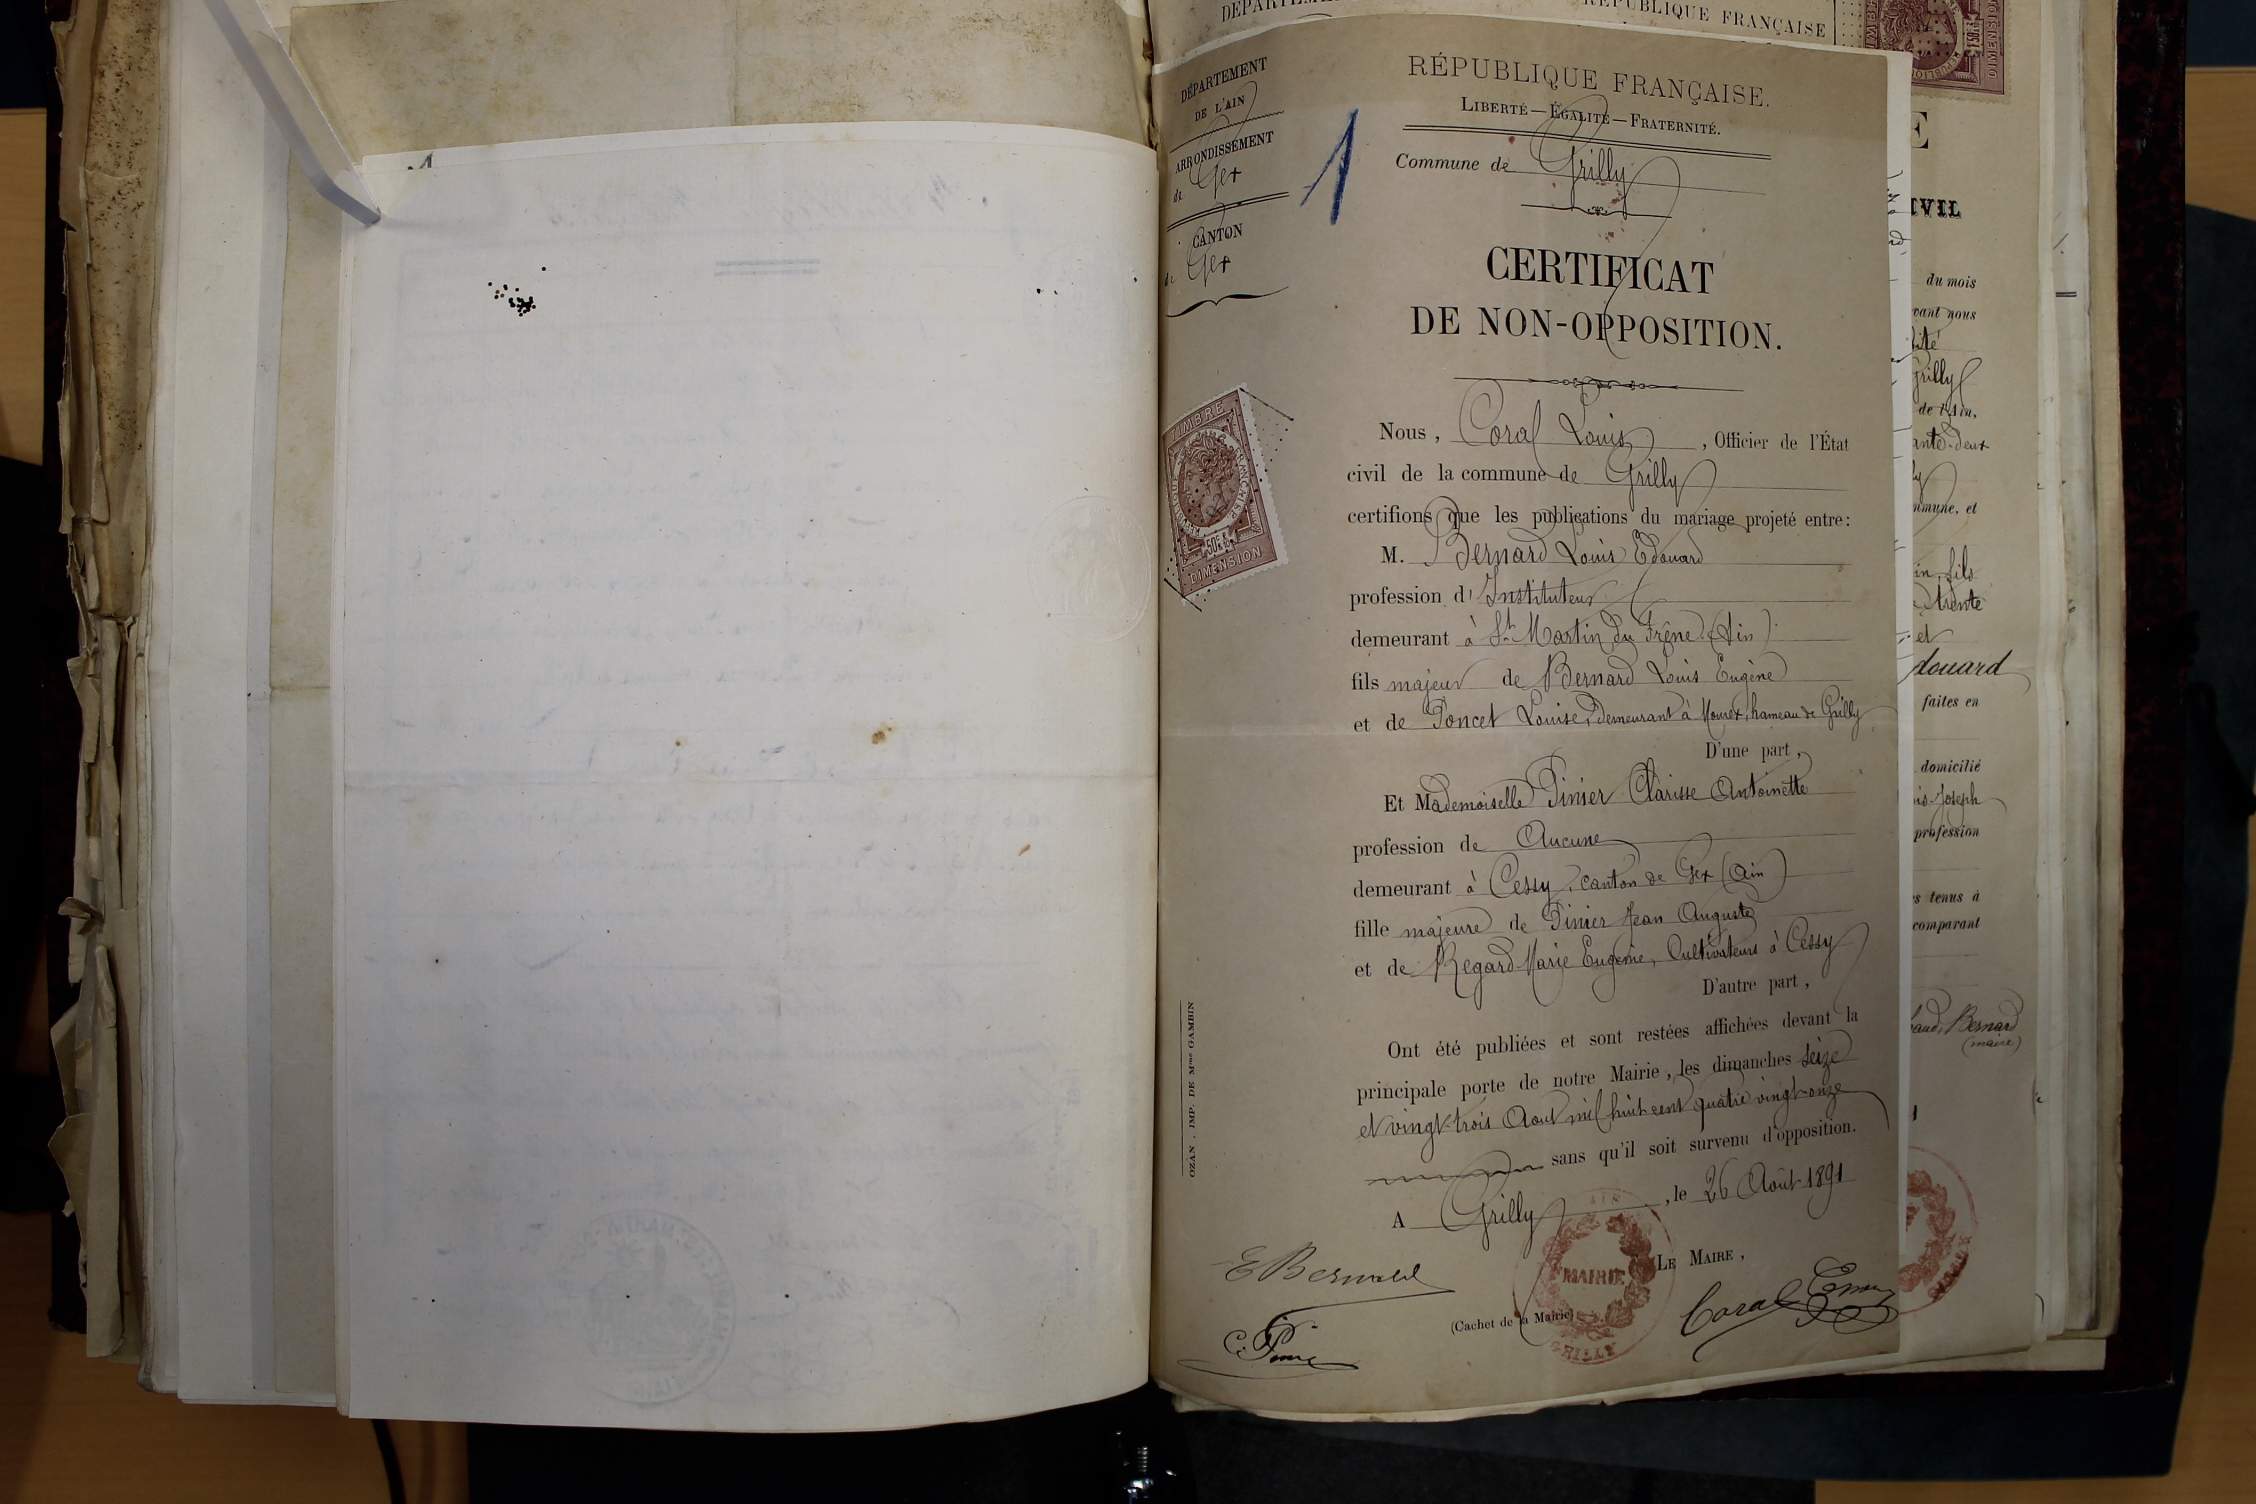 DÉPARTEMENT
DE L'AIN
ARRONDISSEMENT
de Gex
CANTON
de Gex
1
RÉPUBLIQUE FRANÇAISE.
LIBERTÉ — ÉGALITÉ — FRATERNITÉ.
Commune de Grilly
CERTIFICAT
DE NON-OPPOSITION.
TIMBRE
DIMENSION
Nous, Coral Louis, Officier de l'État
civil de la commune de Grilly
certifions que les publications du mariage projeté entre:
M. Bernard Louis Edouard
profession d'Instituteur
demeurant à St Martin du Frêne (Ain)
fils majeur de Bernard Louis Eugène
et de Poncet Louise, demeurant à Mourex, hameau de Grilly
D'une part,
Et Mademoiselle Pinier Clarisse Antoinette
profession de Aucune
demeurant à Cessy, canton de Gex (Ain)
fille majeure de Pinier Jean Auguste
et de Regard Marie Eugénie, Cultivateurs à Cessy
D'autre part,
Ont été publiées et sont restées affichées devant la
principale porte de notre Mairie, les dimanches seize
et vingt-trois Aout mil huit cent quatre vingt-onze
sans qu'il soit survenu d'opposition.
A Grilly, le 26 Août 1891
LE MAIRE,
E Bernard
MAIRIE
GRILLY
(Cachet de la Mairie)
Coral
OZAN, IMP. DE Mme GAMBIN
RÉPUBLIQUE FRANÇAISE
DIMENSION
IVIL
du mois
vant nous
Grilly
de l'Ain,
ante-deux
mmune, et
in, fils
trente
et
douard
faites en
domicilié
is Joseph
profession
s tenus à
comparant
Bernard
(maire)